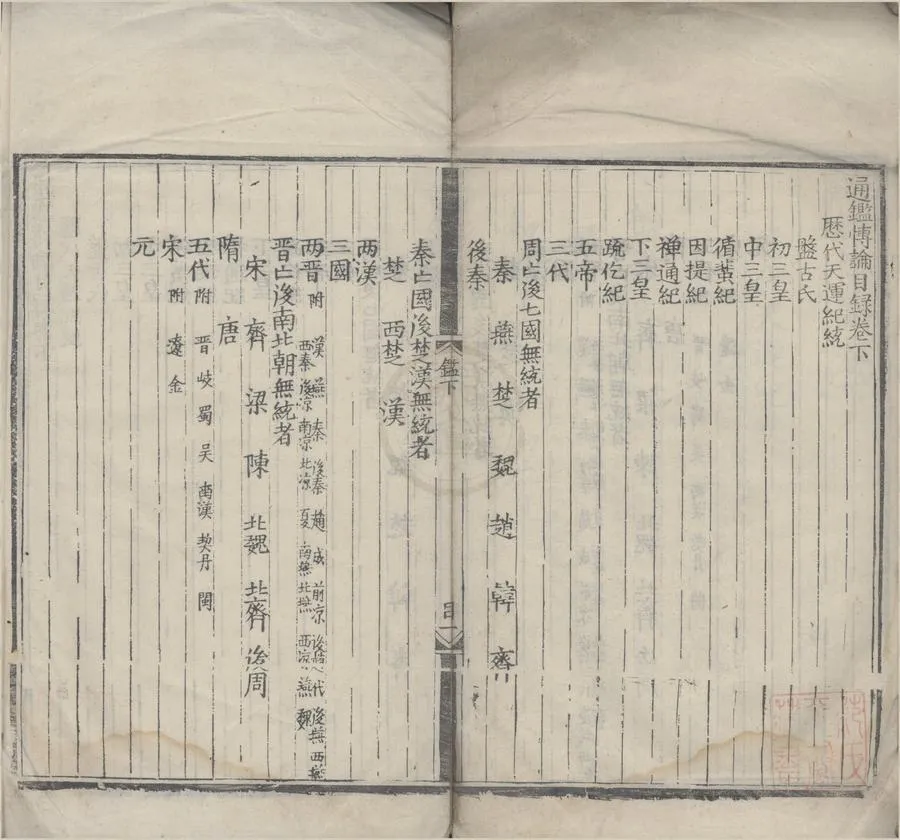 通鑑博論目録卷下
歷代天運紀統
盤古氏
初三皇
中三皇
循蜚紀
因提紀
禪通紀
下三皇
疏仡紀
五帝
三代
周亡後七國無統者
秦 燕 楚 魏 趙 韓 齊
後秦
鑑下
目一
秦亡國後楚漢無統者
楚 西楚 漢
两漢
三國
两晋 附 漢 燕 秦 後秦 趙 成 前凉 後趙 代 後燕 西燕
西秦 後凉 南凉 北凉 夏 南燕 北燕 西凉 燕 魏
晋亡後南北朝無統者
宋 齊 梁 陳 北魏 北齊 後周
隋 唐
五代 附 晋 岐 蜀 吴 南漢 契丹 閩
宋 附 遼 金
元